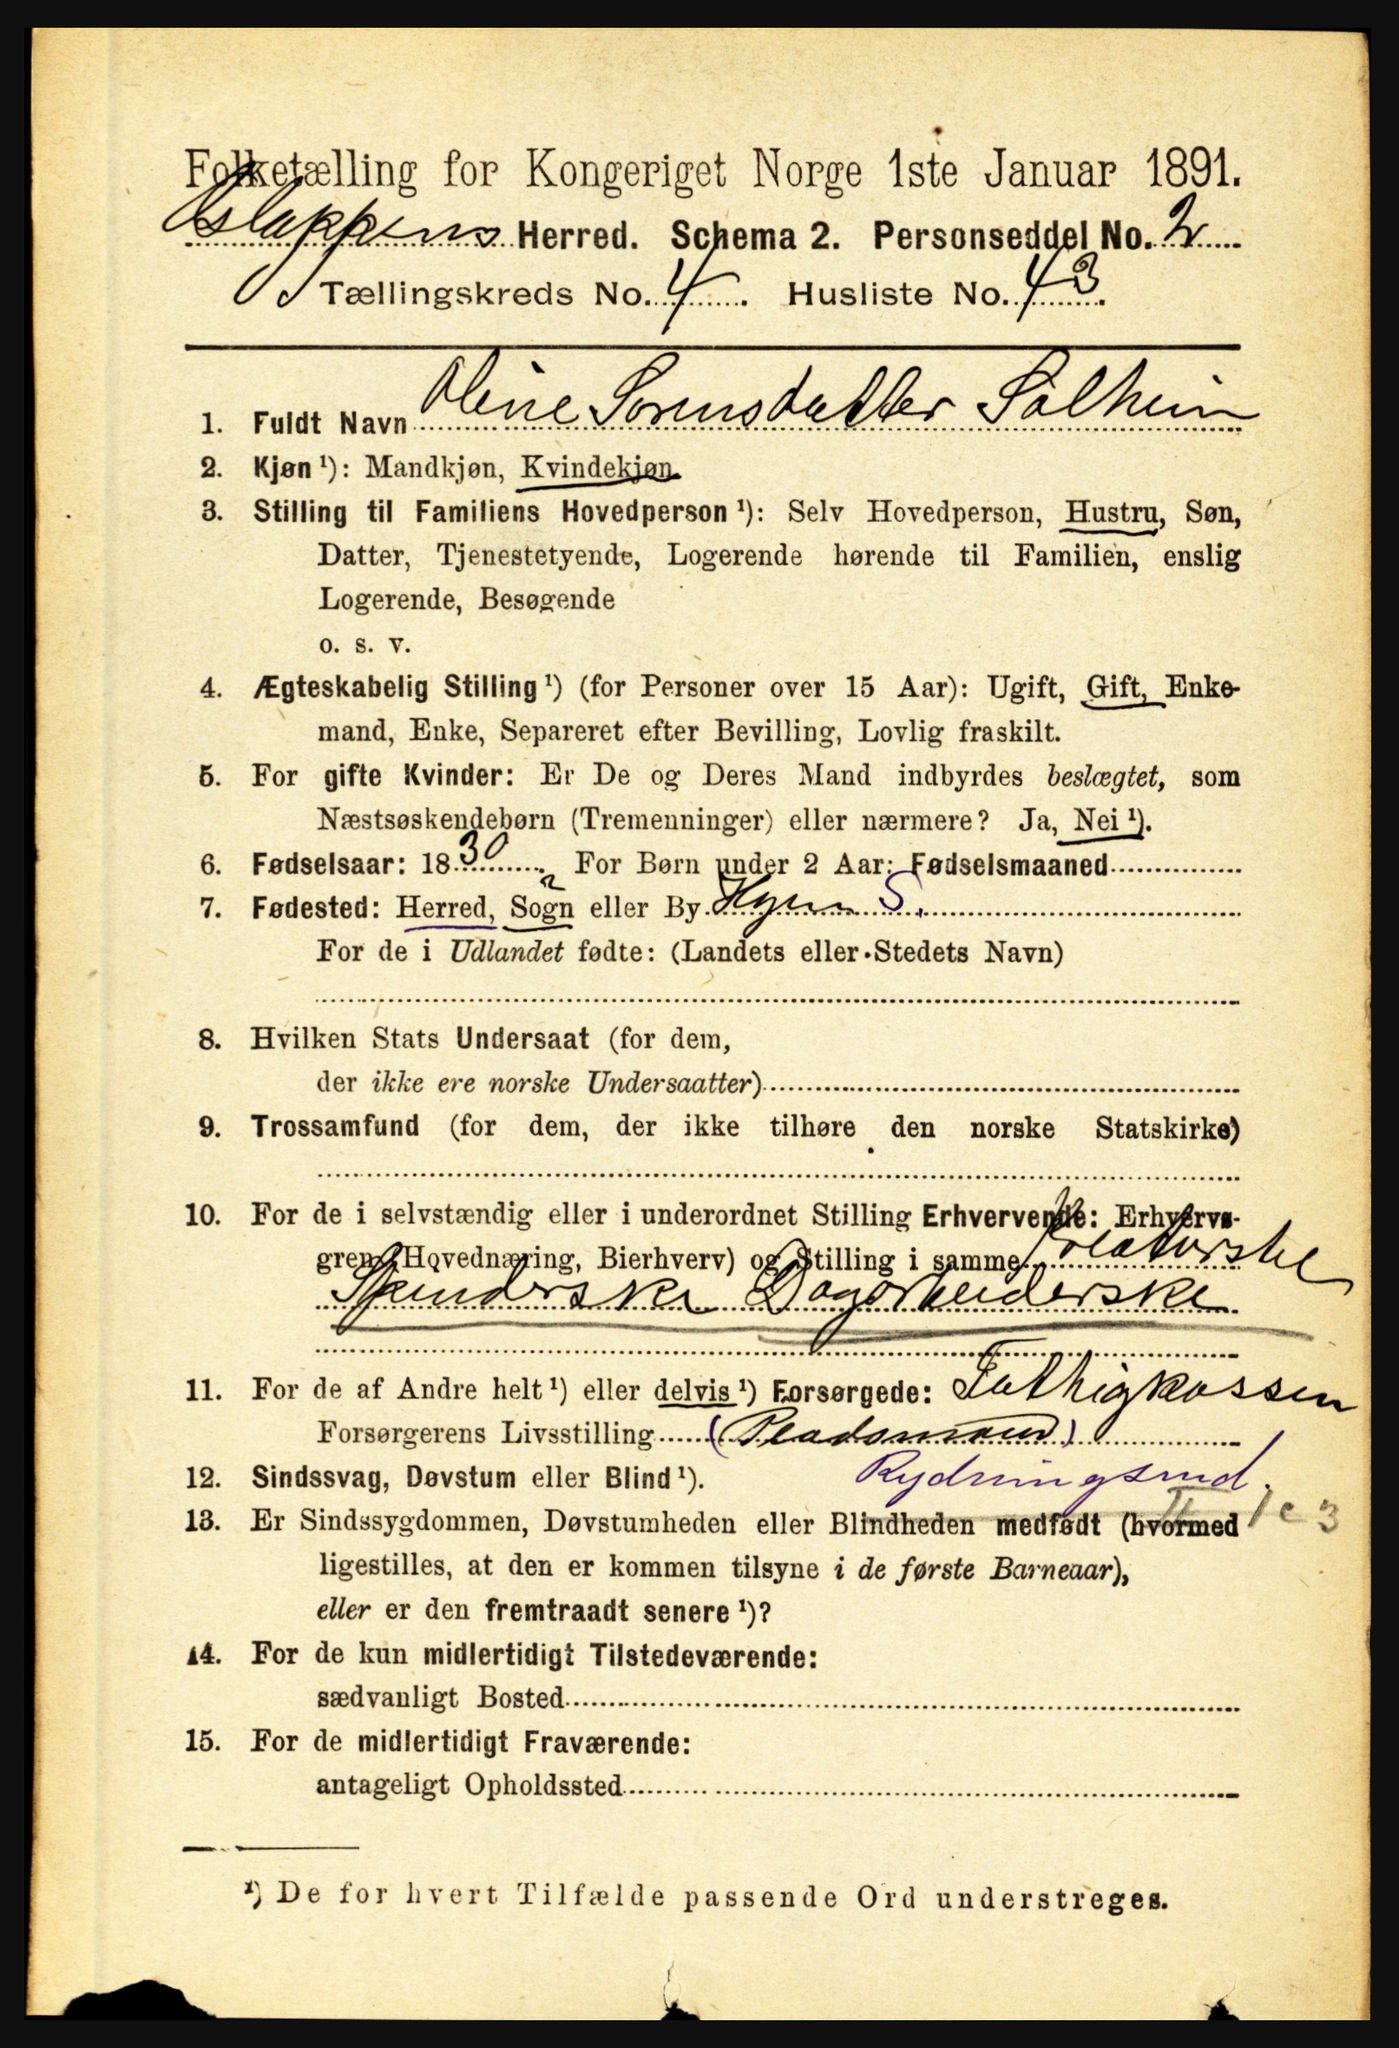 Folketælling for Kongeriget Norge 1ste Januar 1891.
Herred. Schema 2. Personseddel No. 2
Tællingskreds No. 4. Husliste No. 43.
1. Fuldt Navn Oline Sørensdatter Solheim
2. Kjøn¹): Mandkjøn, Kvindekjøn
3. Stilling til Familiens Hovedperson¹): Selv Hovedperson, Hustru, Søn,
Datter, Tjenestetyende, Logerende hørende til Familien, enslig
Logerende, Besøgende
o. s. v.
4. Ægteskabelig Stilling¹) (for Personer over 15 Aar): Ugift, Gift, Enke-
mand, Enke, Separeret efter Bevilling, Lovlig fraskilt.
5. For gifte Kvinder: Er De og Deres Mand indbyrdes beslægtet, som
Næstsøskendebørn (Tremenninger) eller nærmere? Ja, Nei¹).
6. Fødselsaar: 1830. For Børn under 2 Aar: Fødselsmaaned
7. Fødested: Herred, Sogn eller By Hyen S.
For de i Udlandet fødte: (Landets eller Stedets Navn)
8. Hvilken Stats Undersaat (for dem,
der ikke ere norske Undersaatter)
9. Trossamfund (for dem, der ikke tilhøre den norske Statskirke)
10. For de i selvstændig eller i underordnet Stilling Erhvervende: Erhvervs-
gren (Hovednæring, Bierhverv) og Stilling i samme Kreaturstel
Spinderske Dagarbeiderske
11. For de af Andre helt¹) eller delvis¹) Forsørgede: Fattigkassen
Forsørgerens Livsstilling (Pladsmand)
12. Sindssvag, Døvstum eller Blind¹).
13. Er Sindssygdommen, Døvstumheden eller Blindheden medfødt (hvormed
ligestilles, at den er kommen tilsyne i de første Barneaar),
eller er den fremtraadt senere¹)?
14. For de kun midlertidigt Tilstedeværende:
sædvanligt Bosted
15. For de midlertidigt Fraværende:
antageligt Opholdssted
¹) De for hvert Tilfælde passende Ord understreges.